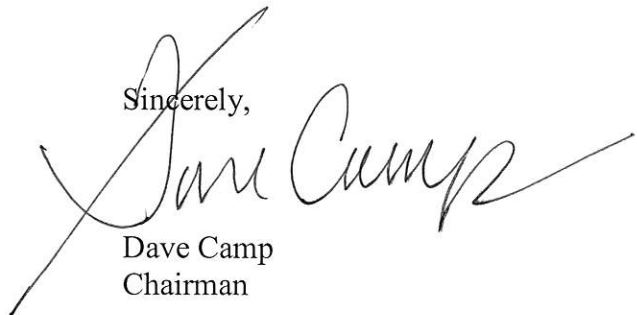 Sincerely,
Dave Camp
Dave Camp
Chairman